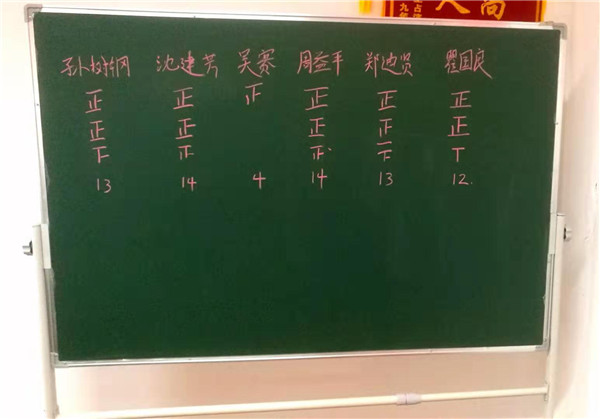 孙树网 沈建芳 吴赛 周益平 郑迪贤 瞿国良
正 正 正 正 正 正
正 正 正 正 正
下 正 正 下 丅
13 14 4 14 13 12.